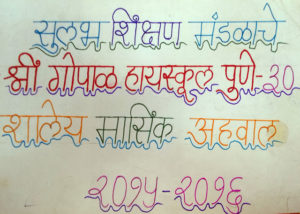 सुलभ शिक्षण मंडळाचे
श्री गोपाळ हायस्कूल पुणे-३०
शालेय मासिक अहवाल
२०१५-२०१६